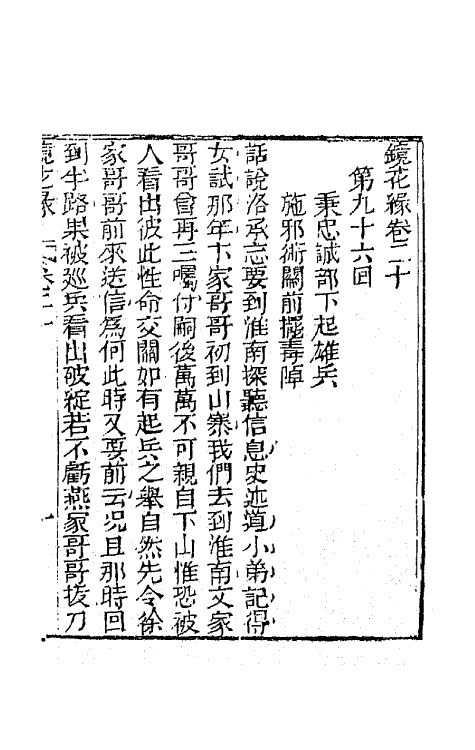 鏡花緣卷二十
第九十六囘
秉忠誠部下起雄兵
施邪術關前擺毒陣
話說洛承志要到淮南探聽信息史述道小弟記得
女試那年卞家哥哥初到山寨我們去到淮南文家
哥哥曾再三囑付嗣後萬萬不可親自下山惟恐被
人看出彼此性命交關如有起兵之舉自然先令徐
家哥哥前來送信爲何此時又要前去況且那時囘
到半路果被廵兵看出破綻若不虧燕家哥哥拔刀
鏡花緣